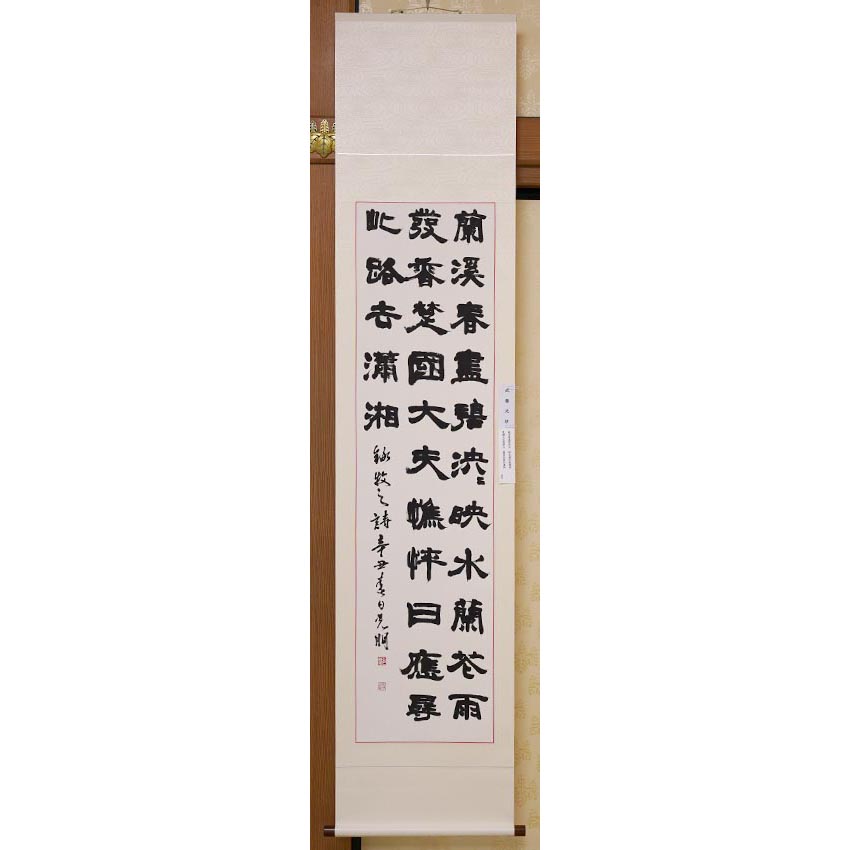 蘭溪春盡碧泱〻映水蘭花雨
發香楚國大夫憔悴日應尋
此路去瀟湘
錄牧之詩辛丑春日光朋